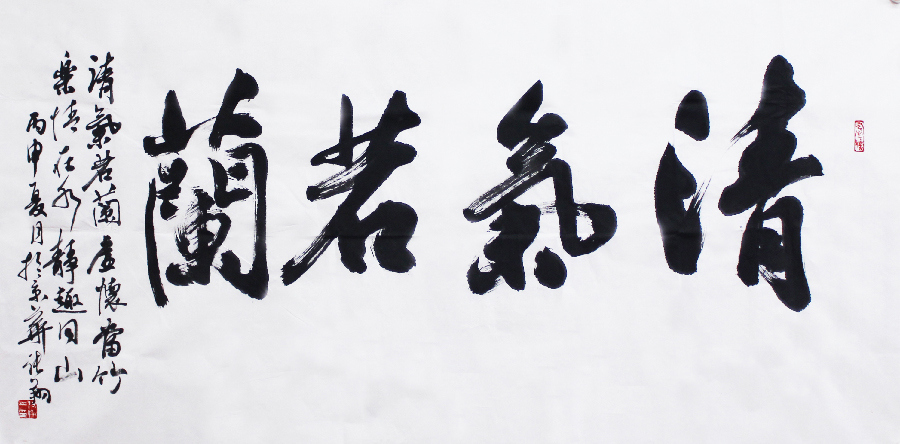 清氣若蘭
清氣若蘭虛懷當竹
樂情在水靜趣同山
丙申夏月於京華張翔